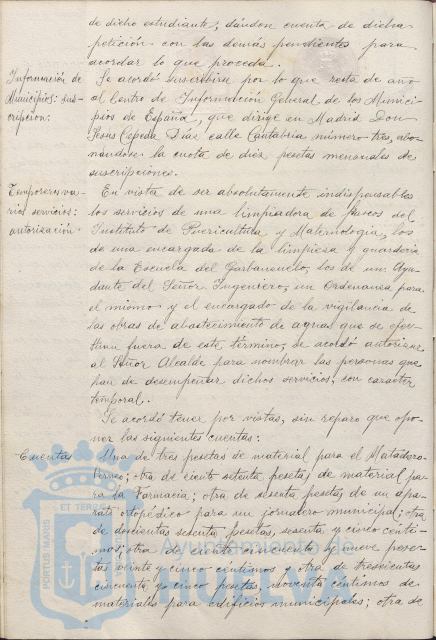 de dicho estudiante, dándose cuenta de dicha
petición con las demás pendientes para
acordar lo que proceda.
Información de
Municipios: sus-
cripción:
Se acordó suscribirse por lo que resta de año
al Centro de Información General de los Munici-
pios de España, que dirige en Madrid Don
Jesús Cepeda Díaz calle Cantabria número tres abo-
nándose la cuota de diez pesetas mensuales de
suscripciones.
Temporeros va-
rios servicios:
autorización.
En vista de ser absolutamente indispensables
los servicios de una limpiadora de pisos del
Instituto de Puericultura y Maternología, los
de una encargada de la limpieza y guardería
de la Escuela del Garbanzuelo, los de un Ayu-
dante del Señor Ingeniero, un Ordenanza para
el mismo y el encargado de la vigilancia de
las obras de abastecimiento de aguas que se efec-
túan fuera de este término, se acordó autorizar
al Señor Alcalde para nombrar las personas que
han de desempeñar dichos servicios, con carácter
temporal.
Se acordó tener por vistas, sin reparo que opo-
ner las siguientes cuentas:
Cuentas
Una de tres pesetas de material para el Matadero
; otra de ciento setenta pesetas, de material pa-
ra la Farmacia; otra de sesenta pesetas, de un apa-
rato ortopédico para un jornalero municipal; otra
de doscientas sesenta pesetas, sesenta y cinco cénti-
mos; otra de ciento cincuenta y nueve pese-
tas veinte y cinco céntimos y otra de trescientas
cincuenta y cinco pesetas, noventa céntimos de
materiales para edificios municipales; otra de
ET TERRÆ
PORTUS MARIS
Ayuntamiento de
HUELVA